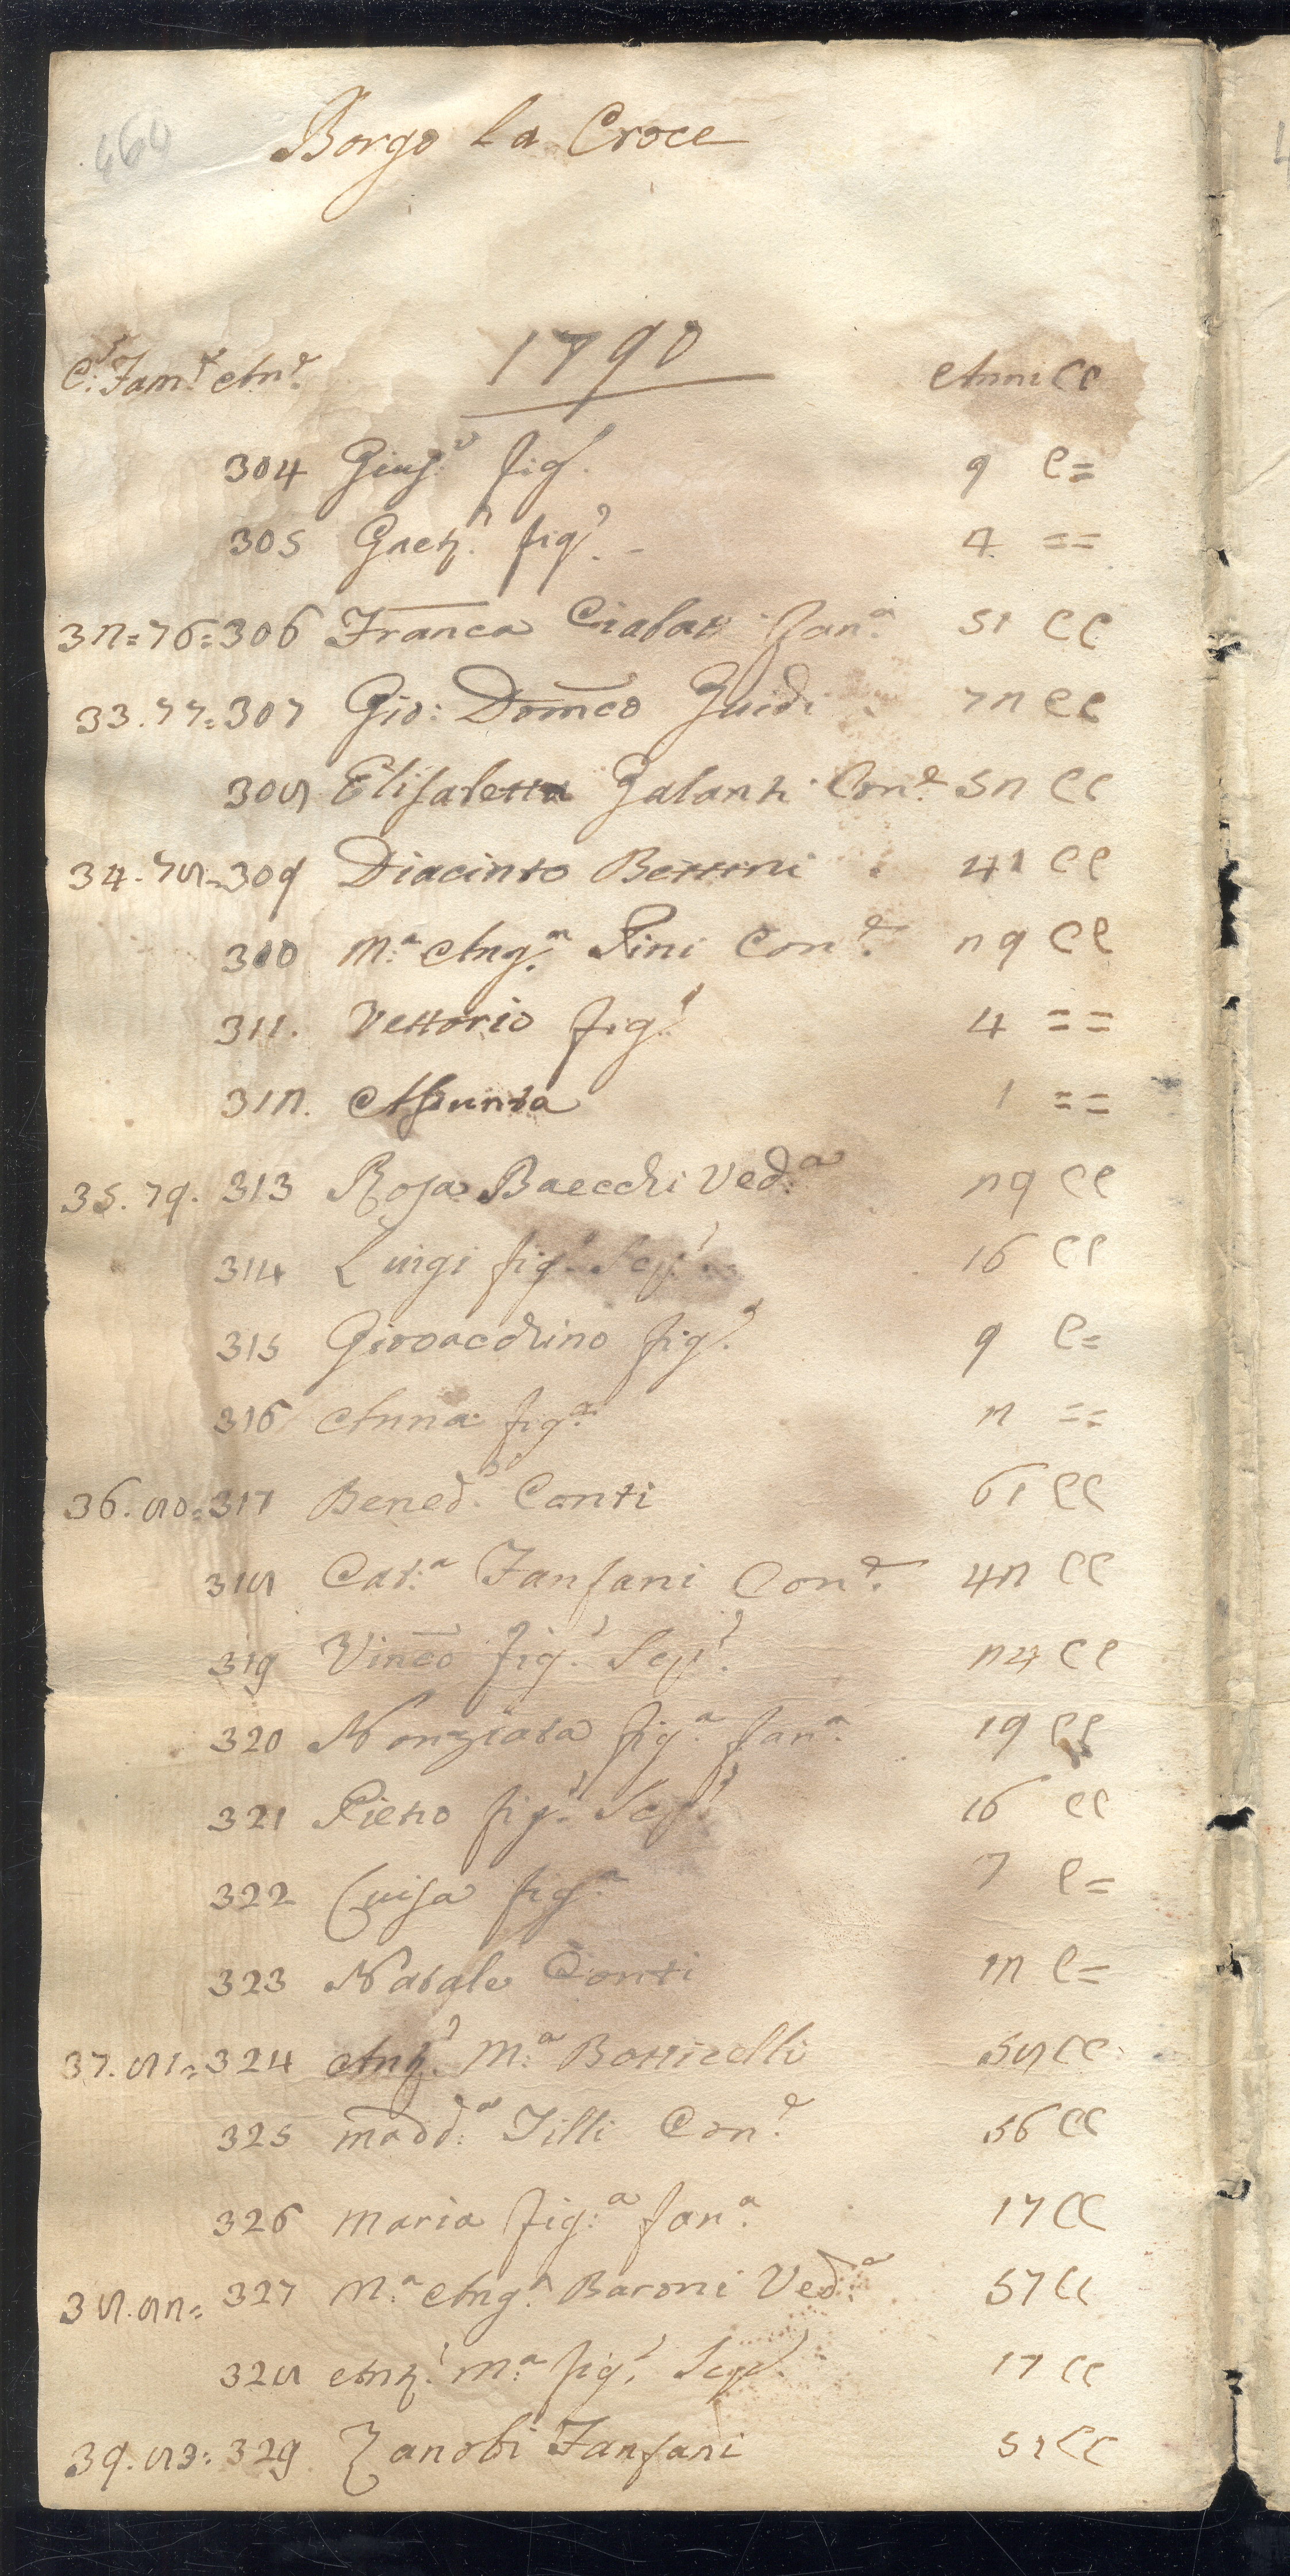 464
Borgo la Croce
1790
C: Fam.e An.e Anni CC
304 Gius.e fig. 9 C=
305 Gaet.o fig.o 4 ==
32=76=306 Franca Fan.a 51 CC
33.77=307 Gio: Domco Guidi 72 CC
308 Elisabetta Galanti Con.e 52 CC
34.78=309 Diacinto Bettini 41 CC
300 M.a Ang.a Pini Con.e 29 CC
311. Vettorio fig.o 4 ==
312. Assunta 1 ==
35.79. 313 Rosa Baecchi Ved.a 29 CC
314 Luigi fig.o Scp.o 16 CC
315 Giovacchino fig.o 9 C=
316 Anna fig.a 2 ==
36.80=317 Bened.o Conti 61 CC
318 Cat.a Fanfani Con.e 42 CC
319 Vinco fig.o Scp.o 24 CC
320 Nonziata fig.a fan.a 19 CC
321 Pietro fig.o Scp.o 16 CC
322 Luisa fig.a 7 C=
323 Natale Conti 12 C=
37.81=324 Ant.o M.a Botticelli 58 CC
325 madd.a Tilli Con.e 56 CC
326 maria fig.a fan.a 17 CC
38.82= 327 M.a Ang.a Baroni Ved.a 57 CC
328 Ant.o M.a fig.o Scp.o 17 CC
39.83=329 Zanobi Fanfani 52 CC